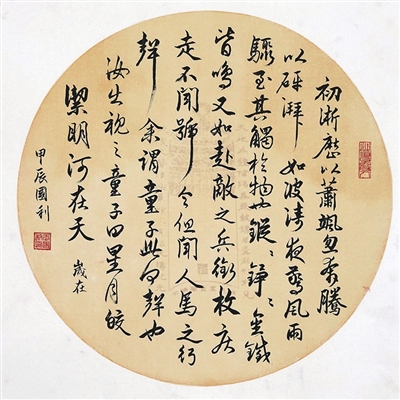 初淅歷以蕭颯忽奔騰
以砰湃如波濤夜驚風雨
驟至其觸於物也鏦〻錚〻金鐵
皆鳴又如赴敵之兵銜枚疾
走不聞號令但聞人馬之行
聲余謂童子此何聲也
汝出視之童子曰星月皎
潔明河在天歲在
甲辰國利